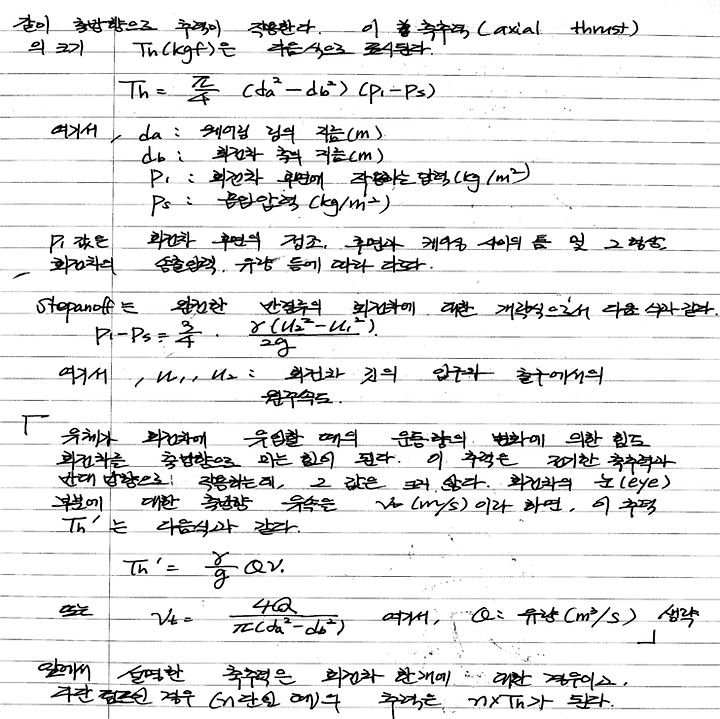 같이 축방향으로 추력이 작용한다. 이 축추력 (axial thrust)
의 크기 Th(kgf)은 다음식으로 표시된다.
Th = π/4 (da² - db²) (p₁ - ps)
여기서, da : 웨어링 링의 지름(m)
db : 회전차 축의 지름(m)
P₁ : 회전차 후면에 작용하는 압력(kg/m²)
Ps : 흡입압력 (kg/m²)
P₁ 값은 회전차 후면의 구조, 후면과 케이싱 사이의 틈 및 그 형상,
회전차의 송출압력, 유량 등에 따라 다르다.
Stepanoff는 완전한 반경류의 회전차에 대한 개략식으로서 다음 식과 같다.
P₁ - Ps = 3/4 · γ(u₂² - u₁²)/2g
여기서, u₁, u₂ : 회전차 깃의 입구와 출구에서의
원주속도.
「 유체가 회전차에 유입할 때의 운동량의 변화에 의한 힘도
회전차를 축방향으로 미는 힘이 된다. 이 추력은 전기한 축추력과
반대 방향으로 작용하는데, 그 값은 크지 않다. 회전차의 눈(eye)
부분에 대한 축방향 유속을 (m/s)이라 하면, 이 추력
Th'는 다음식과 같다.
Th' = γ/g Qv.
또는 = 4Q/π(da² - db²) 여기서, Q : 유량(m³/s) 」 생략
앞에서 설명한 축추력은 회전차 한개에 대한 경우이고,
다단 펌프인 경우 (n단일 때)의 추력은 n×Th가 된다.